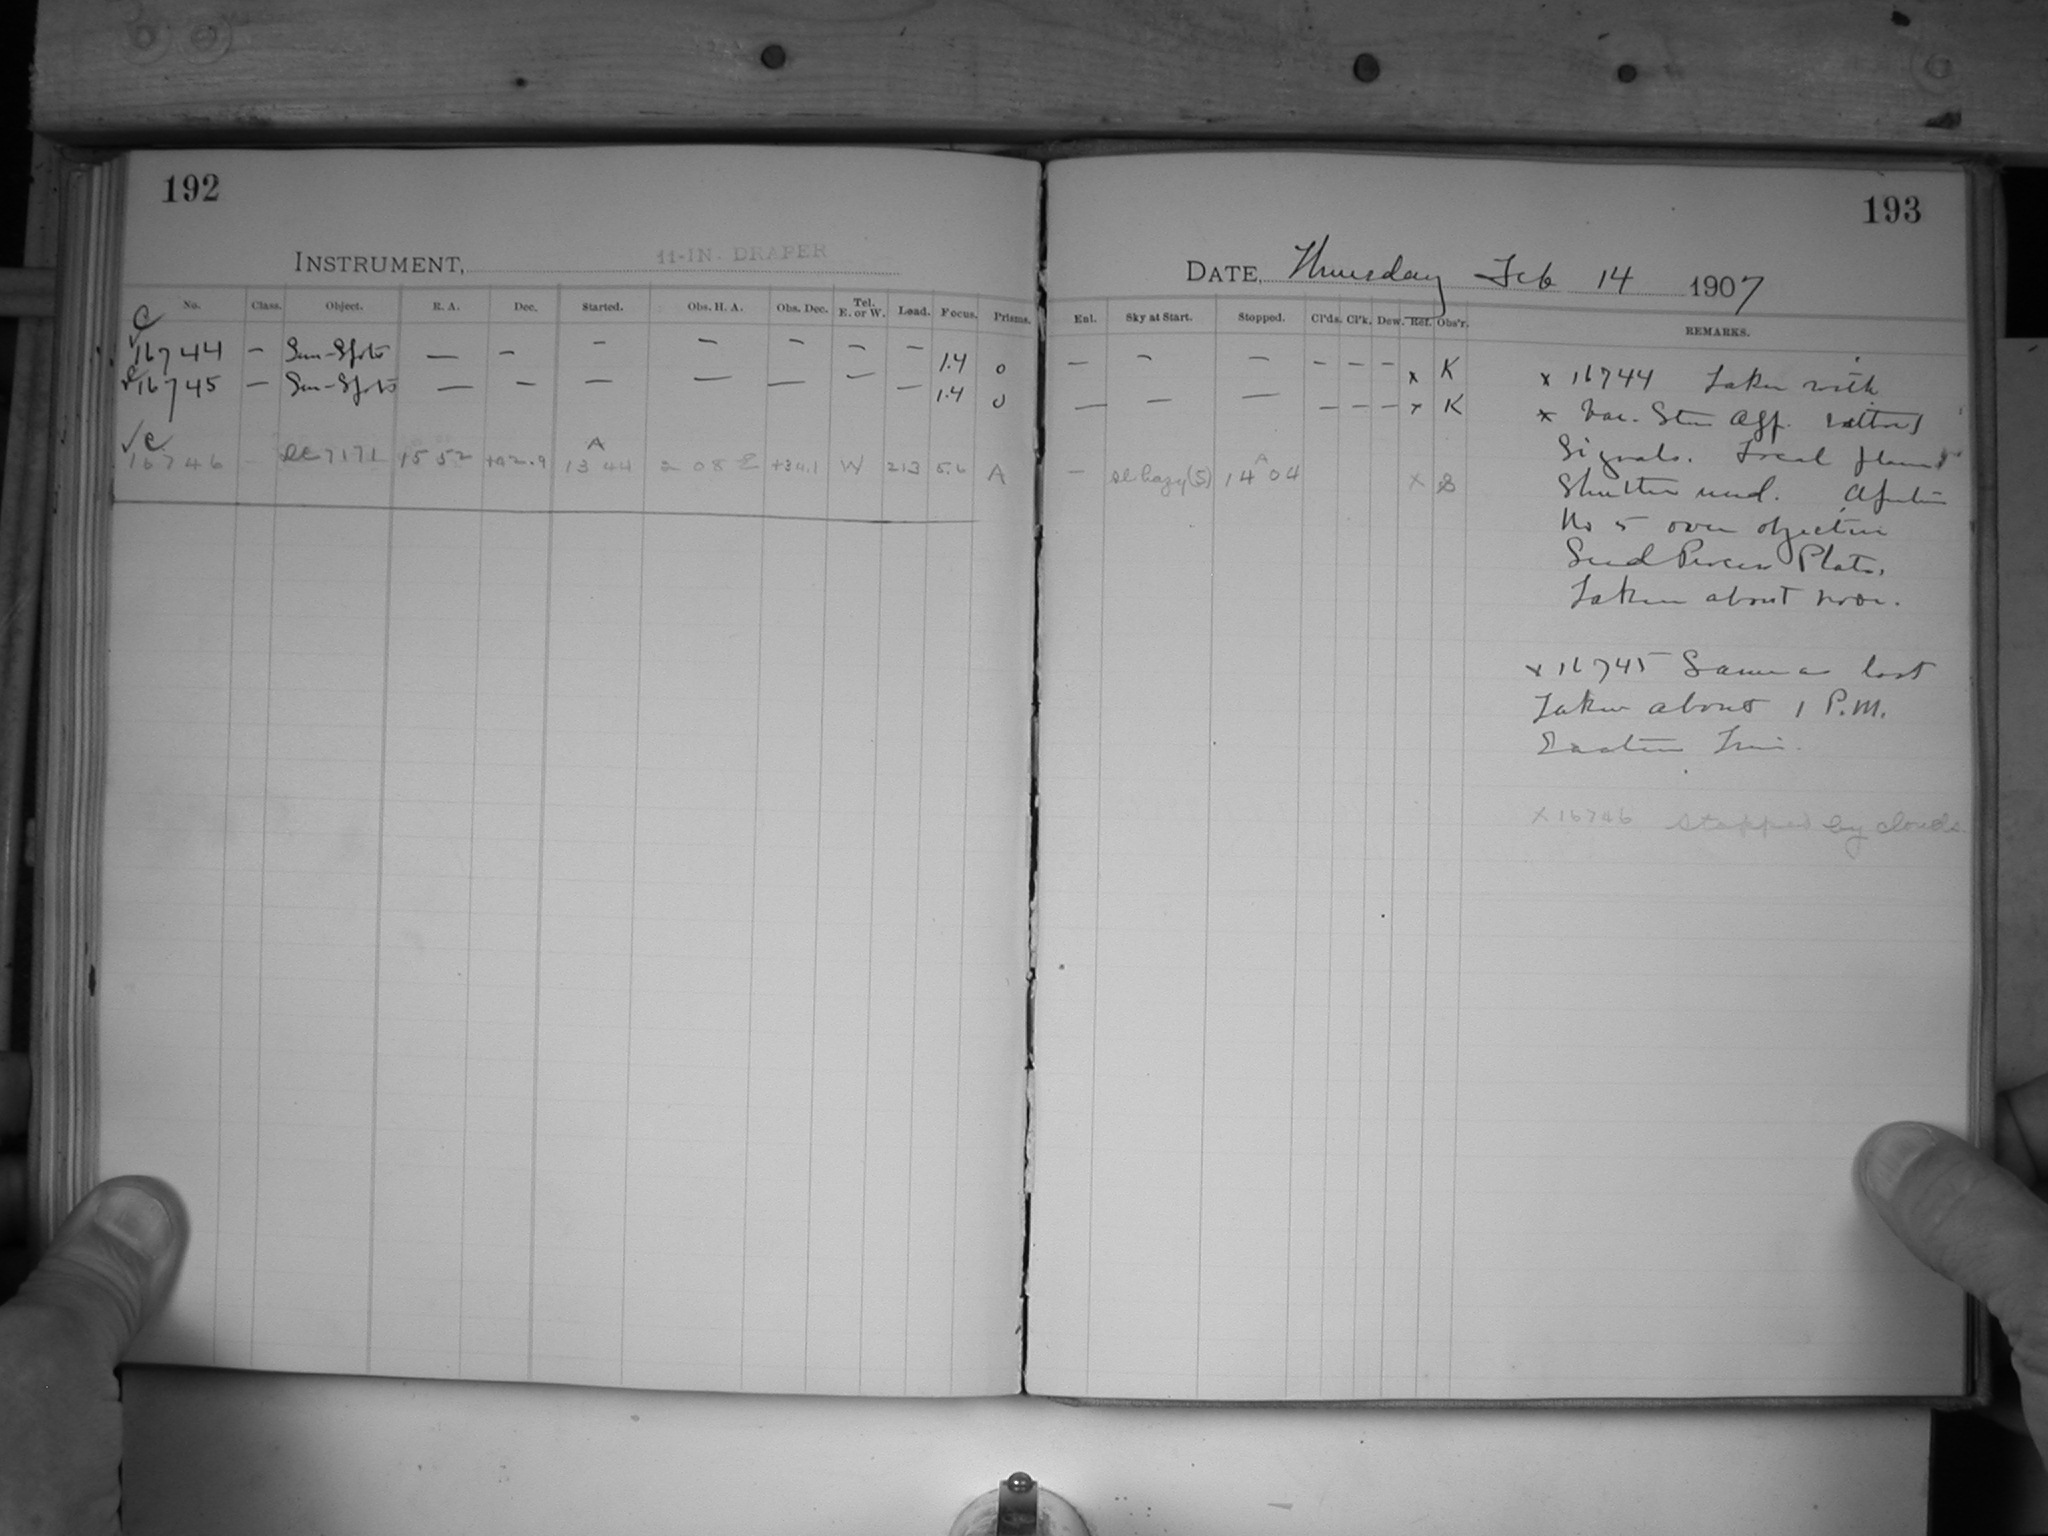 192
INSTRUMENT, 11-IN. DRAPER
No. Class. Object. R. A. Dec. Started. Obs. H. A. Obs. Dec. Tel. E. or W. Load. Focus. Prisms.
C
✓16744 — Sun-Spots — — — — — — — 1.4 0
✓C 16745 — Sun-Spots — — — — — — — 1.4 0
✓C
16746 — 7171 15 52 +42.9 13 A 44 2 08 E +39.1 W 213 5.6 A
193
DATE, Thursday Feb 14 1907
Enl. Sky at Start. Stopped. Cl'ds. Cl'k. Dew. Ref. Obs'r. REMARKS.
— — — — — — x K
— — — — — — x K
— sl hazy (5) 14 A 04 x S
x 16744 Taken with
x Var. Star App.
Signals. Focal plane
Shutter used.
No 5 over objective
Seed Process Plate.
Taken about noon.
x 16745 Same as last
Taken about 1 P.M.
Eastern Time.
x 16746 stopped by clouds.